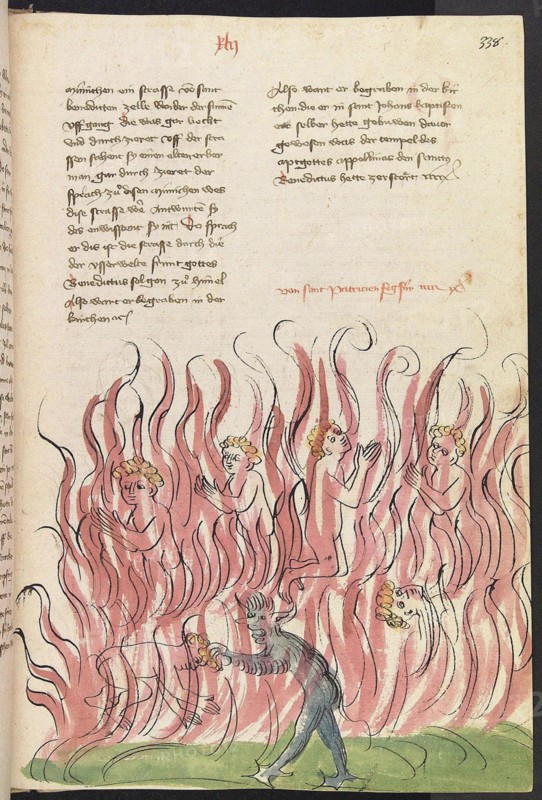 xlij
338.
münichen ein strasse võ sant
benedicten zelle wider der sunnē
vff gang die was gar liecht
vnd durch zieret vff der stra
ssen schein sy einen eltern erber
man gar durch zieret der
sprach zů disen münichen wes
dise strasse wer Antwurten sy
des enwisstent sy nit Do sprach
er dis ist die strasse durch die
der vsserwelte frúnt gottes
Benedictus sol gon zů himel
Also wart er begraben in der
kirchen
Also wart er begraben in der kir
chen die er in sant Johans baptisten
ere selber hette gebuwen do vor
gewesen was der tempel des
apgottes appollinis den sanctus
Benedictus hette zerstört
von sant Patricien fegfúr